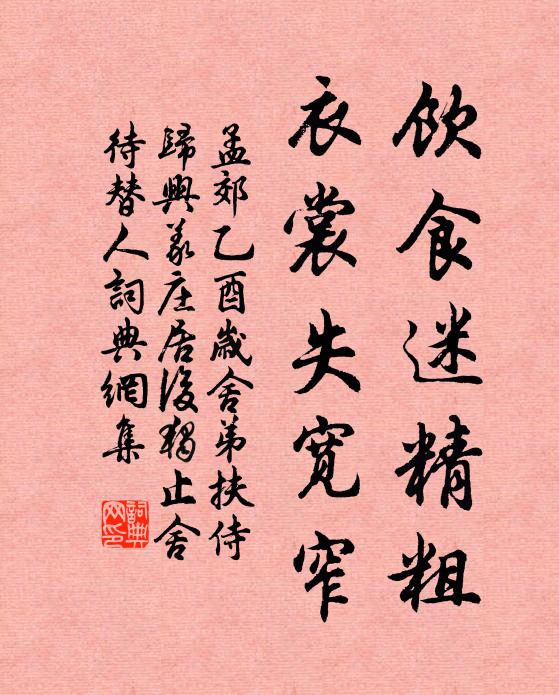 飲食迷精粗
衣裳失寬窄
孟郊乙酉歲舍弟扶侍
歸興義庄居後獨止舍
待替人詞典網集
詞典网印